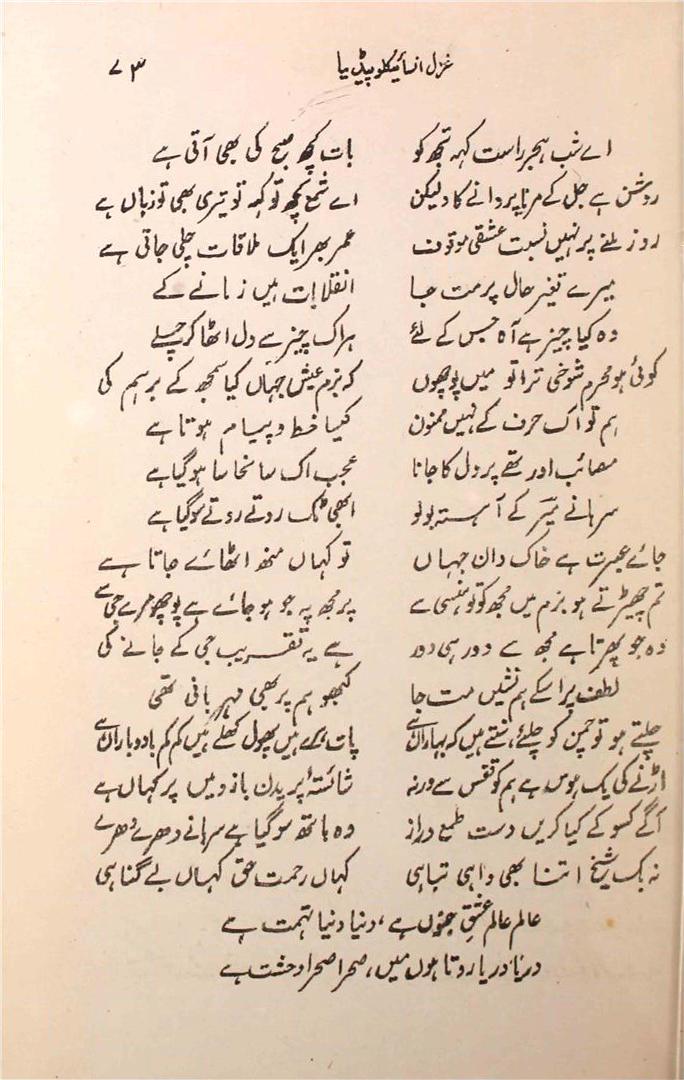 غزل انسائیکلوپیڈیا ۷۳
اے شب ہجر راست کہہ تجھ کو بات کچھ صبح کی بھی آتی ہے
روشن ہے جل کے مرنا پروانے کا ولیکن اے شمع کچھ تو کہہ تو تیری بھی تو زباں ہے
روز ملنے پر نہیں نسبت عشقی موقوف عمر بھر ایک ملاقات چلی جاتی ہے
میرے تغیر حال پر مت جا انقلابات ہیں زمانے کے
وہ کیا چیز ہے آہ جس کے لئے ہر اک چیز سے دل اٹھا کر چلے
کوئی ہو محرم شوخی ترا تو میں پوچھوں کہ بزم عیش جہاں کیا سمجھ کے برہم کی
ہم تو اک حرف کے نہیں ممنون کیسا خط و پیام ہوتا ہے
مصائب اور تھے پر دل کا جانا عجب اک سانحا سا ہو گیا ہے
سرہانے میر کے آہستہ بولو ابھی ٹک روتے روتے سو گیا ہے
جائے عبرت ہے خاک دان جہاں تو کہاں منھ اٹھائے جاتا ہے
تم چھیڑتے ہو بزم میں مجھ کو تو ہنسی سے پر مجھ پہ جو ہو جائے ہے پوچھو مرے جی سے
وہ جو پھرتا ہے مجھ سے دور ہی دور ہے یہ تقریب جی کے جانے کی
لطف پر اس کے ہم نشیں مت جا کبھو ہم پر بھی مہربانی تھی
چلتے ہو تو چمن کو چلئے، سنتے ہیں کہ بہاراں ہے پات ہرے ہیں پھول کھلے ہیں کم کم بادوباراں ہے
اڑنے کی یک ہوس ہے ہم کو قفس سے ورنہ شائستۂ پریدن بازو میں پر کہاں ہے
آگے کسو کے کیا کریں دست طمع دراز وہ ہاتھ سو گیا ہے سرہانے دھرے دھرے
نہ بک شیخ اتنا بھی واہی تباہی کہاں رحمت حق کہاں بے گناہی
عالم عالم عشق جنوں ہے، دنیا دنیا تہمت ہے
دریا دریا روتا ہوں میں، صحرا صحرا وحشت ہے